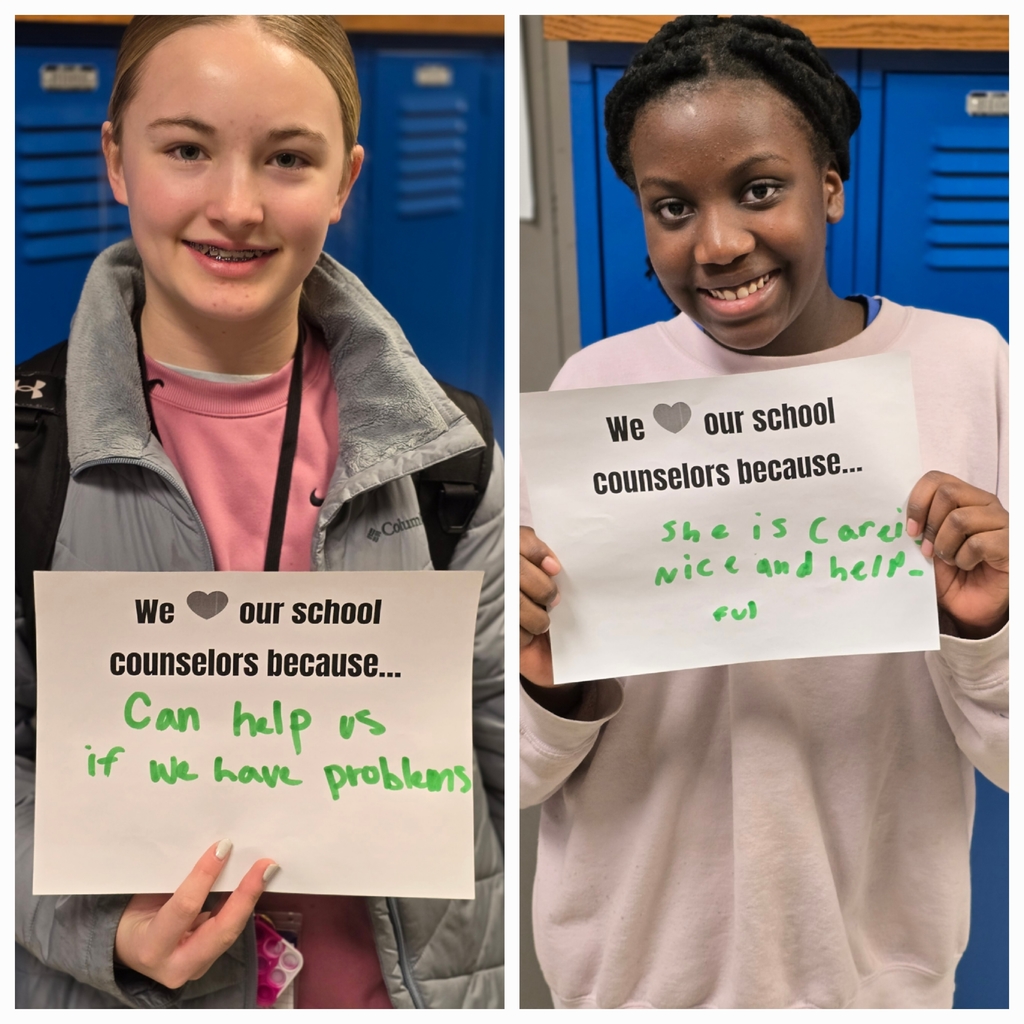 We ♥ our school
counselors because...
Can help us
if we have problems
Columb
We ♥ our school
counselors because...
She is Carei
Nice and help-
ful